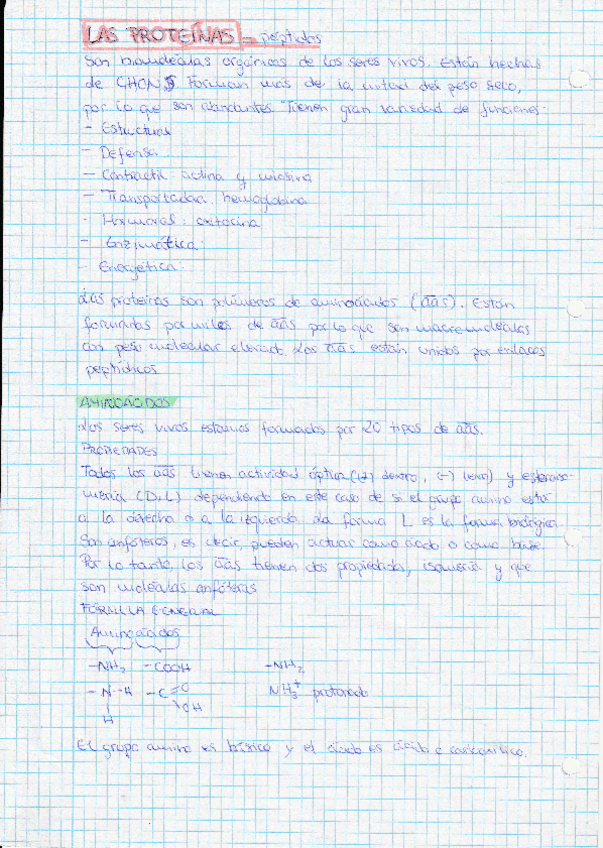 LAS PROTEÍNAS - péptidos
Son biomoléculas orgánicas de los seres vivos. Están hechas
de CHONS. Forman más de la mitad del peso seco,
por lo que son abundantes. Tienen gran variedad de funciones:
- Estructural
- Defensa
- Contractil: actina y miosina
- Transportadora: hemoglobina
- Hormonal: oxitocina
- Enzimática
- Energética
Las proteínas son polímeros de aminoácidos (aas). Están
formadas por miles de aas por lo que son macromoléculas
con peso molecular elevado. Los aas están unidos por enlaces
peptídicos
AMINOÁCIDOS
Los seres vivos estamos formados por 20 tipos de aas.
PROPIEDADES
Todos los aas tienen actividad óptica (+) dextro, (-) (levo) y estereoiso-
mería (D, L) dependiendo en este caso de si el grupo amino está
a la derecha o a la izquierda. La forma L es la forma biológica.
Son anfóteros, es decir, pueden actuar como ácido o como base.
Por lo tanto, los aas tienen dos propiedades, isomería y que
son moléculas anfóteras
FÓRMULA GENERAL
Aminoácidos
-NH₂ -COOH -NH₂
-N-H -C=O NH₃⁺ protonado
H OH
El grupo amino es básico y el ácido es ácido o carboxílico.